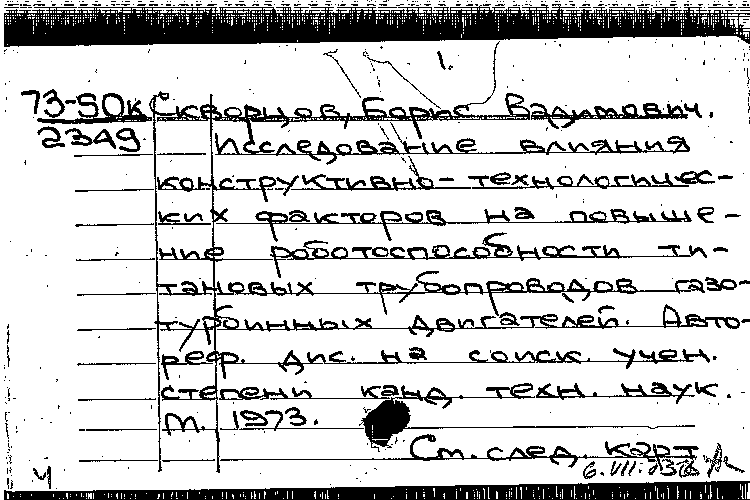 1.
73-50к Скворцов, Борис Вадимович.
2349 Исследование влияния
конструктивно-технологичес-
ких факторов на повыше-
ние роботоспособности ти-
тановых трубопроводов газо-
турбинных двигателей. Авто-
реф. дис. на соиск. учен.
степени канд. техн. наук.
М. 1973.
См. след. карт
Ч